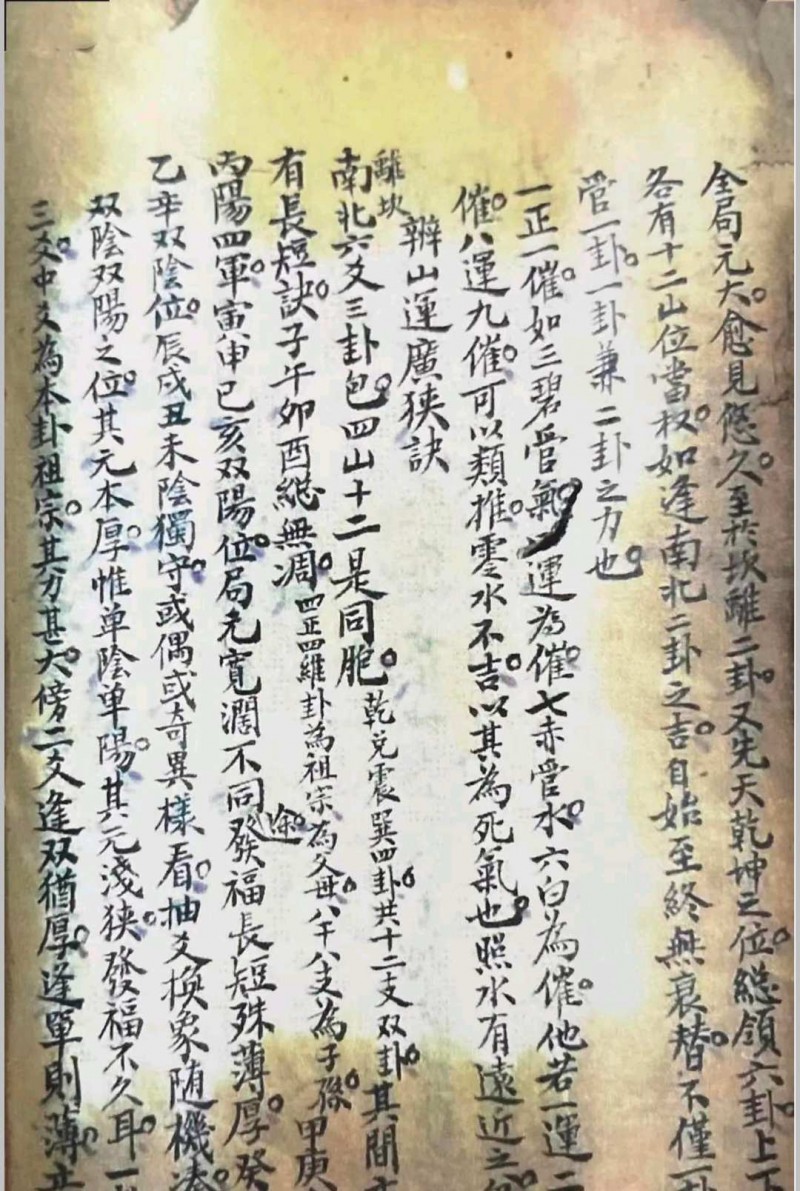 全局元大。愈見悠久。至於坎離二卦。又先天乾坤之位。総領六卦。上下
各有十二山位當权。如逢南北二卦之吉。自始至終無衰替。不僅一卦
管一卦。一卦兼二卦之力也。
一正一催。如三碧管氣。運為催。七赤管水。六白為催。他若一運二
催。八運九催。可以類推。零水不吉。以其為死氣也。照水有遠近之
辨山運廣狹訣
離坎
南北六爻三卦包。四山十二是同胞。乾兌震巽四卦。共十二支双卦。其間
有長短訣。子午卯酉総無凋。四正四維卦為祖宗為父母。八干八支為子孫。甲庚
丙陽四軍。寅申巳亥双陽位。局元寬濶不同途。發福長短殊薄厚。癸
乙辛双陰位。辰戌丑未陰獨守。或偶或奇異樣看。抽爻換象随機
双陰双陽之位。其元本厚。惟单陰单陽。其元淺狹。發福不久耳。一
三爻。中爻為本卦祖宗。其力甚大。傍二爻逢双猶厚。逢單則薄。